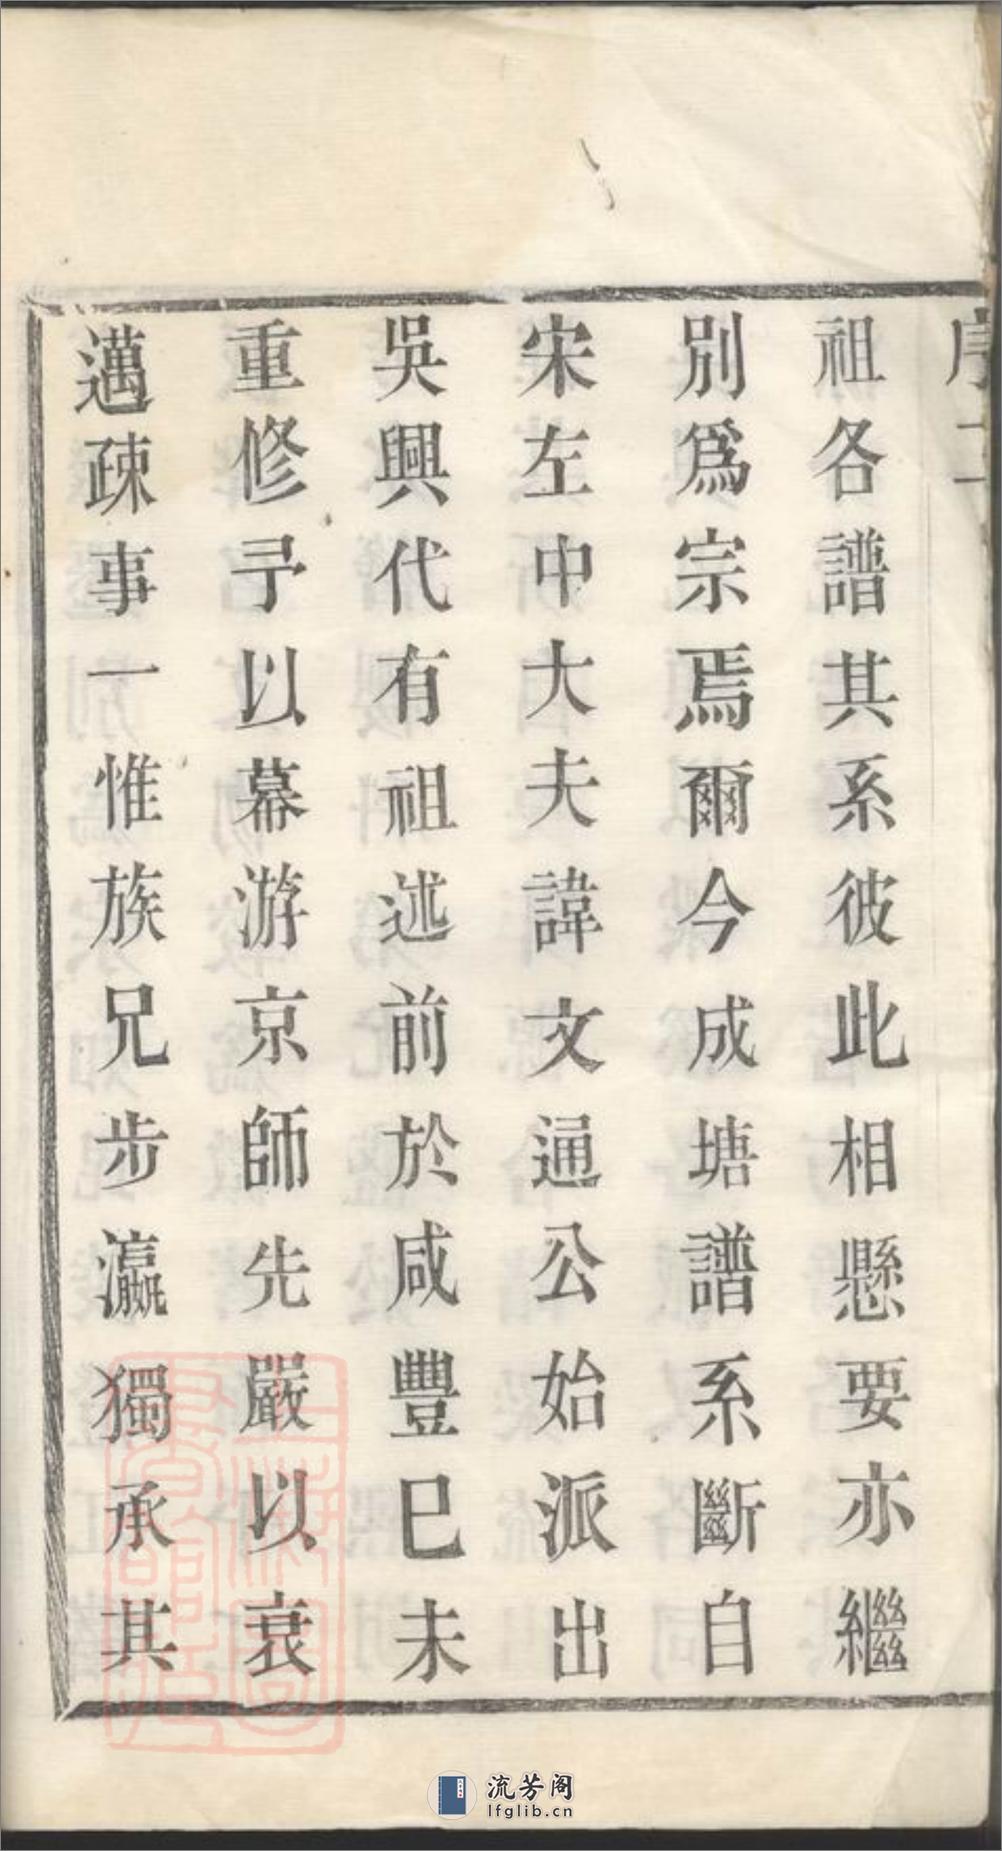 序二
祖各譜其系彼此相懸要亦繼
別爲宗焉爾今成塘譜系斷自
宋左中大夫諱文通公始派出
吳興代有祖述前於咸豐巳未
重修予以幕游京師先嚴以衰
邁疎事一惟族兄步瀛獨承其
流芳阁
lfglib.cn